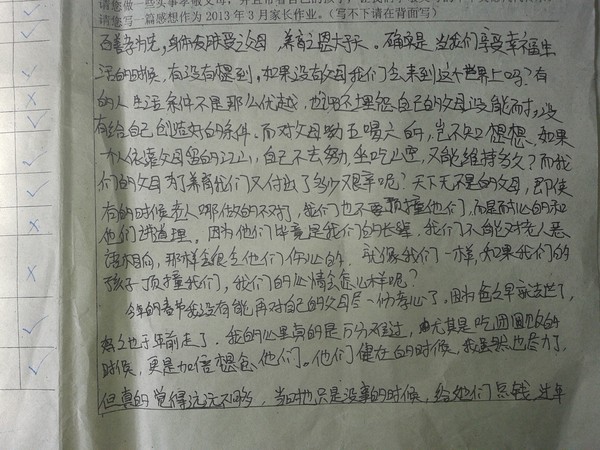 请您写一篇感想作为2013年3月家长作业。(写不下请在背面写)
百善孝为先,身体发肤受之父母,养育之恩大于天。确实是当我们享受幸福生
活的时候,有没有想到,如果没有父母我们会来到这个世界上吗?有
的人生活条件不是那么优越,也用不埋怨自己的父母没能耐,没
有给自己创造好的条件。而对父母呦五喝六的,岂不知想想,如果
一个人依靠父母留的江山,自己不去努力,坐吃山空,又能维持多久?而我
们的父母为了养育我们又付出了多少艰辛呢?天下无不是的父母,即使
有的时候老人哪做的不对,我们也不要顶撞他们,而是耐心的和
他们讲道理。因为他们毕竟是我们的长辈,我们不能对老人恶
语相向,那样会很会他们伤心的。就像我们一样,如果我们的
孩子顶撞我们,我们的心情会怎么样呢?
今年的春节我没有能再对自己的父母尽一份孝心了,因为爸爸早就去世了,
妈妈也于年前走了。我的心里真的是万分难过,尤其是吃团圆饭的
时候,更是加倍想念他们。他们健在的时候,我虽然也尽力了,
但真的觉得远远不够,当时也只是没事的时候,给她们点钱,过年